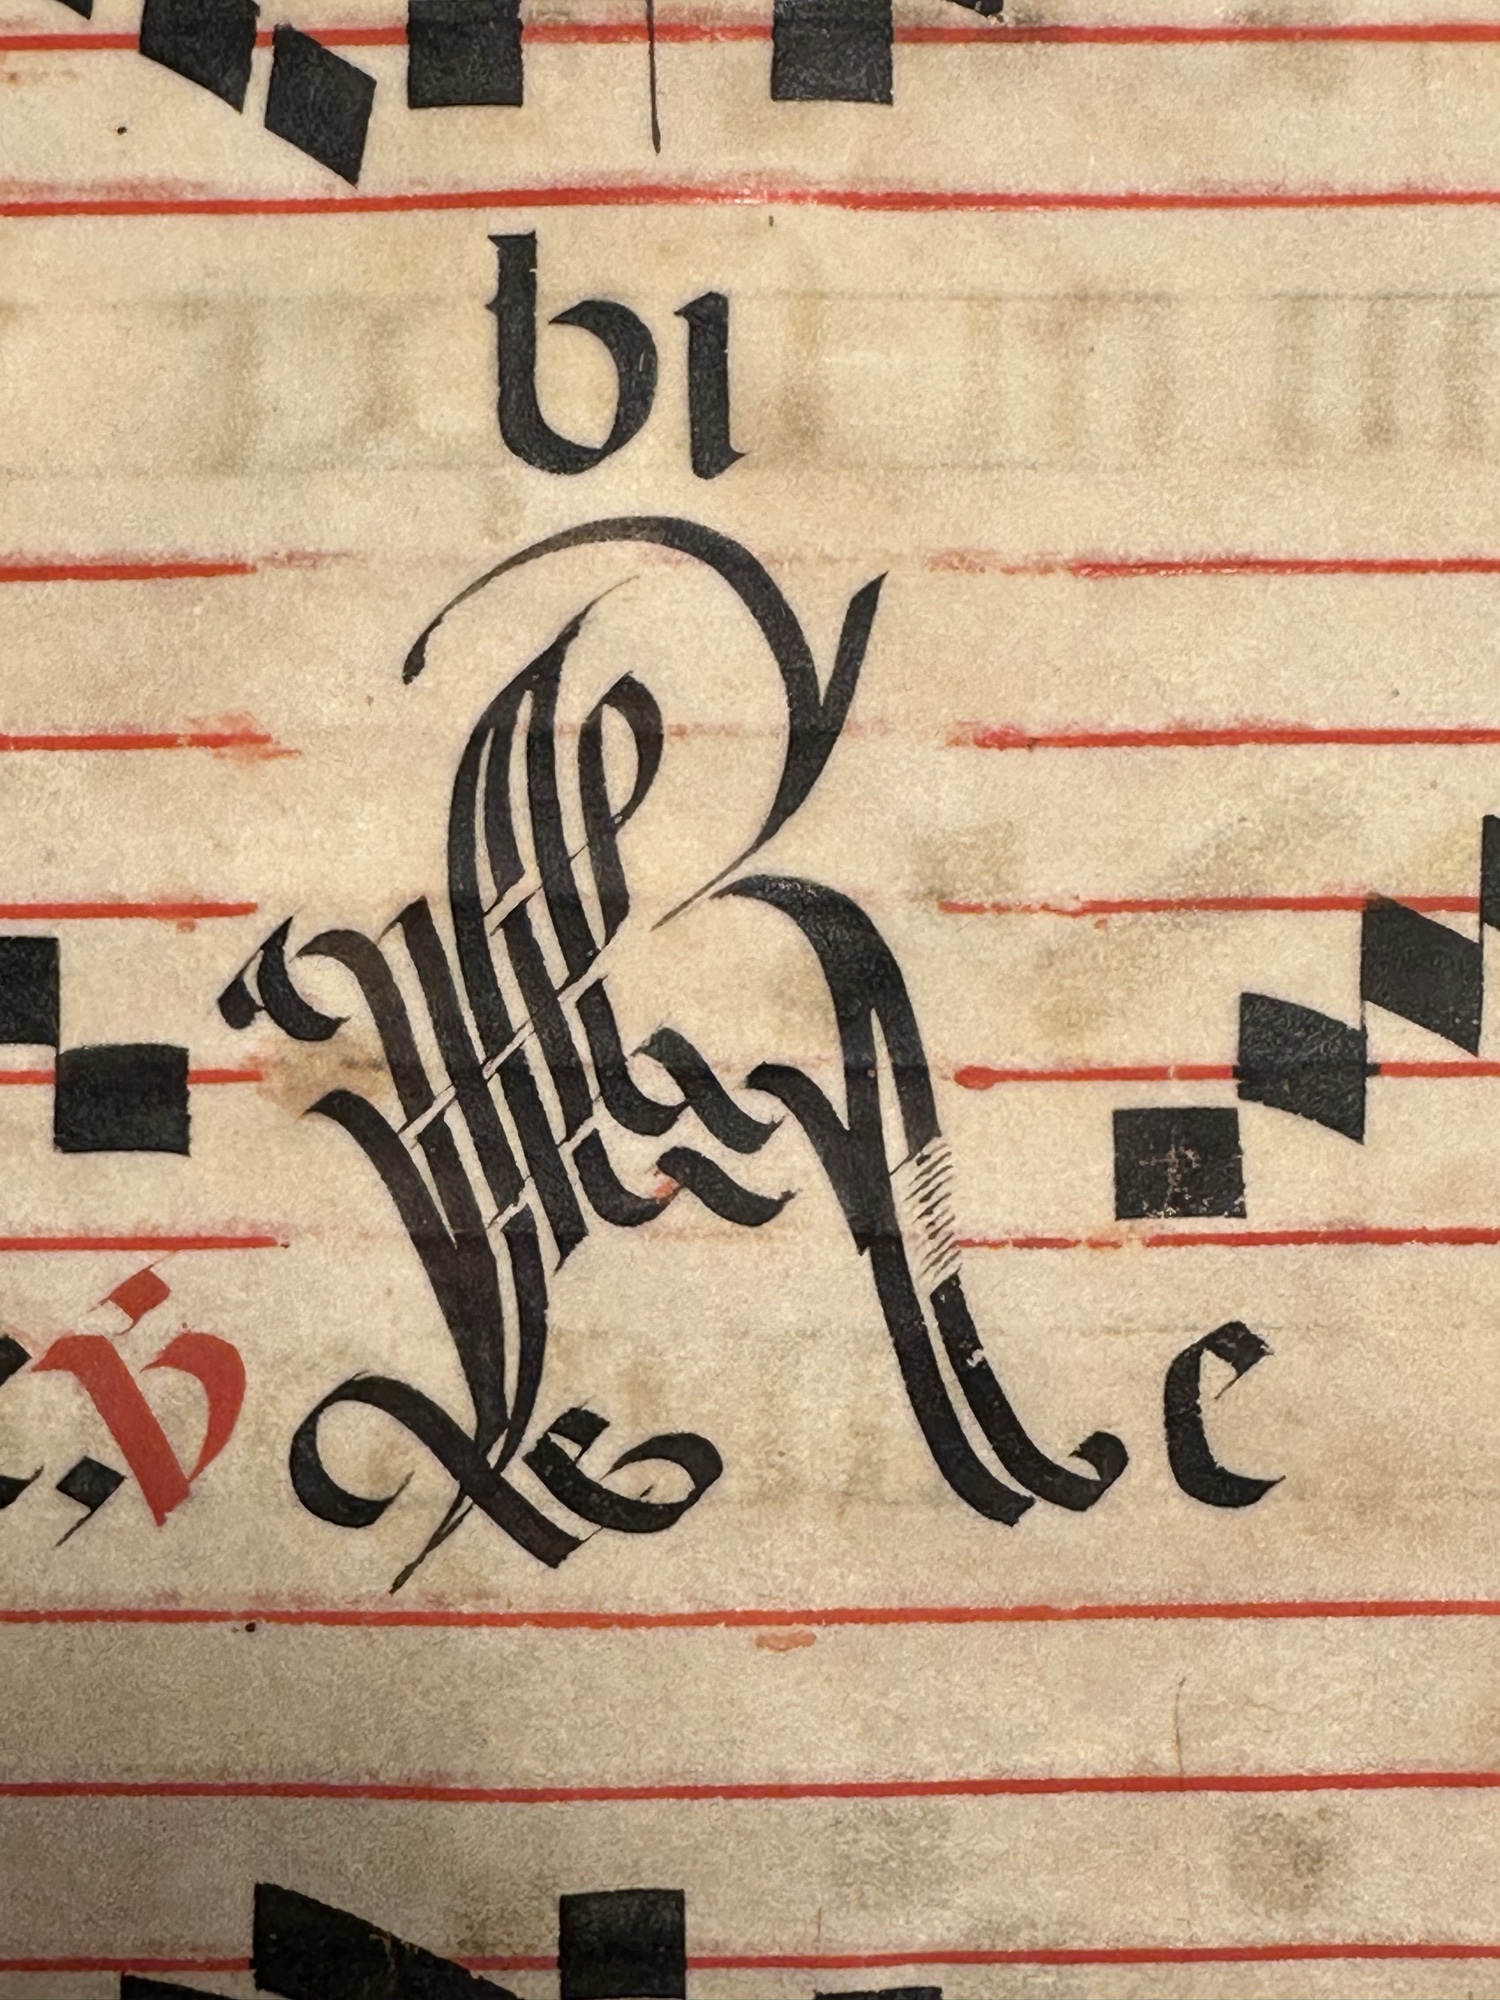 bi
℣ Re